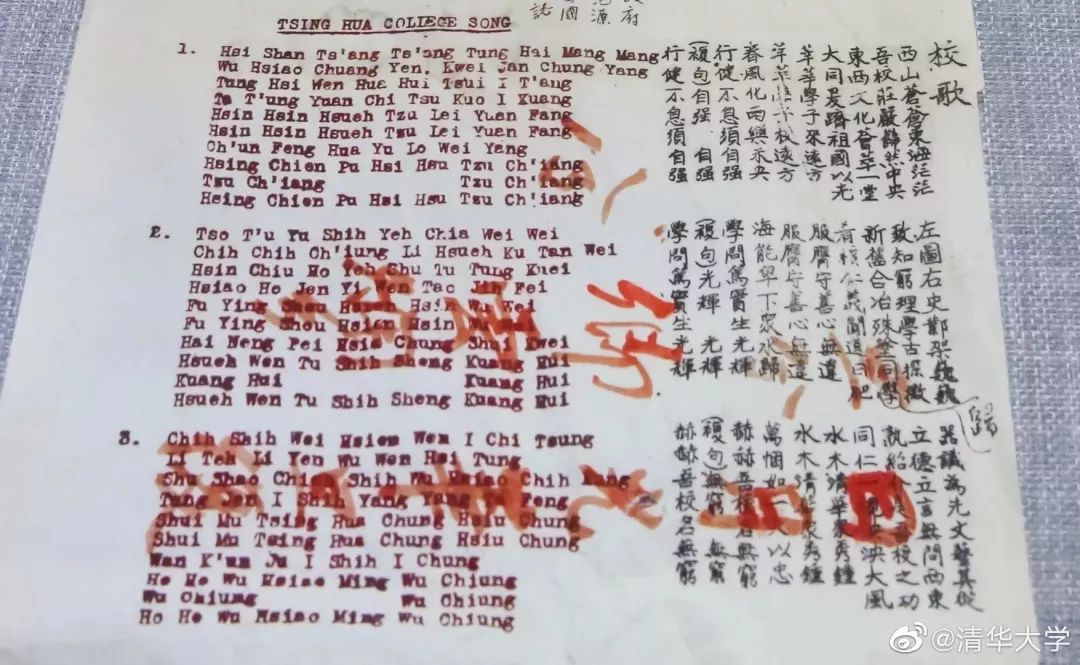 TSING HUA COLLEGE SONG
1. Hsi Shan Ts'ang Ts'ang Tung Hai Mang Mang
Wu Hsiao Chuang Yen, Kwei Jan Chung Yang
Tung Hsi Wen Hua Hui Tsui I T'ang
Ta T'ung Yuan Chi Tsu Kuo I Kuang
Hsin Hsin Hsueh Tzu Lei Yuan Fang
Hsin Hsin Hsueh Tzu Lei Yuan Fang
Ch'un Feng Hua Yu Lo Wei Yang
Hsing Chien Pu Hsi Hsu Tzu Ch'iang
Tzu Ch'iang Tzu Ch'iang
Hsing Chien Pu Hsi Hsu Tzu Ch'iang
2. Tso T'u Yu Shih Yeh Chia Wei Wei
Chih Chih Ch'iung Li Hsueh Ku Tan Wei
Hsin Chiu Ho Yeh Shu Tu Tung Kuei
Hsiao Ho Jen Yi Wen Tao Jih Fei
Fu Ying Shou Hsin Wu Wei
Fu Ying Shou Hsien Hsin Wu Wei
Hai Neng Pei Hsia Chung Shui Kwei
Hsueh Wen Tu Shih Sheng Kuang Hui
Kuang Hui Kuang Hui
Hsueh Wen Tu Shih Sheng Kuang Hui
3. Chih Shih Wei Hsien Wen I Chi Tsung
Li Teh Li Yen Wu Wen Hsi Tung
Shu Shao Chieh Shih Wu Hsiao Chih Kung
Tung Jen I Shih Yang Yang Ta Feng
Shui Mu Tsing Hua Chung Hsiu Chung
Shui Mu Tsing Hua Chung Hsiu Chung
Wan K'un Ju I Shih I Chung
Ho Ho Wu Hsiao Ming Wu Chiung
Wu Chiung Wu Chiung
Ho Ho Wu Hsiao Ming Wu Chiung
校歌
西山蒼蒼東海茫茫
吾校莊嚴巋然中央
東西文化薈萃一堂
大同爰躋祖國以光
莘莘學子來遠方
莘莘學子來遠方
春風化雨樂未央
行健不息須自强
(複句自强 自强
行健不息須自强
左圖右史鄴架巍巍
致知窮理學古探微
新舊合冶殊途同學
歸
肴核仁義聞道日肥
服膺守善心無違
服膺守善心無違
海能卑下衆水歸
學問篤實生光輝
(複句光輝 光輝
學問篤實生光輝
器識為先文藝其從
立德立言無問西東
孰紹介吾校之功
同仁一視泱泱大風
水木清華衆秀鐘
水木清華衆秀鐘
萬悃如一以忠
赫赫吾校名無窮
(複句無窮 無窮
赫赫吾校名無窮
@清华大学